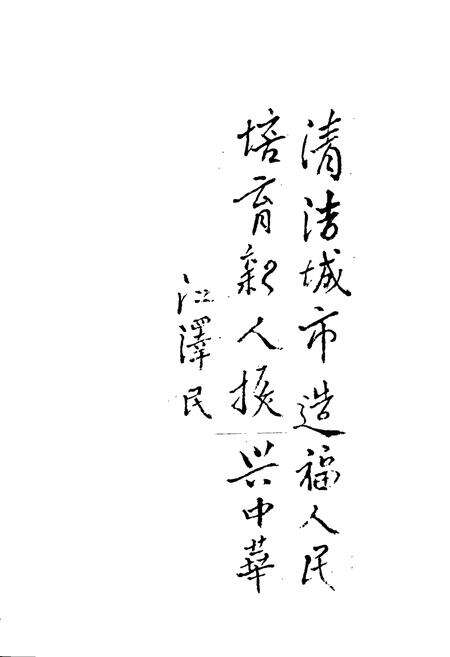 清洁城市造福人民
培育新人振兴中華
江澤民